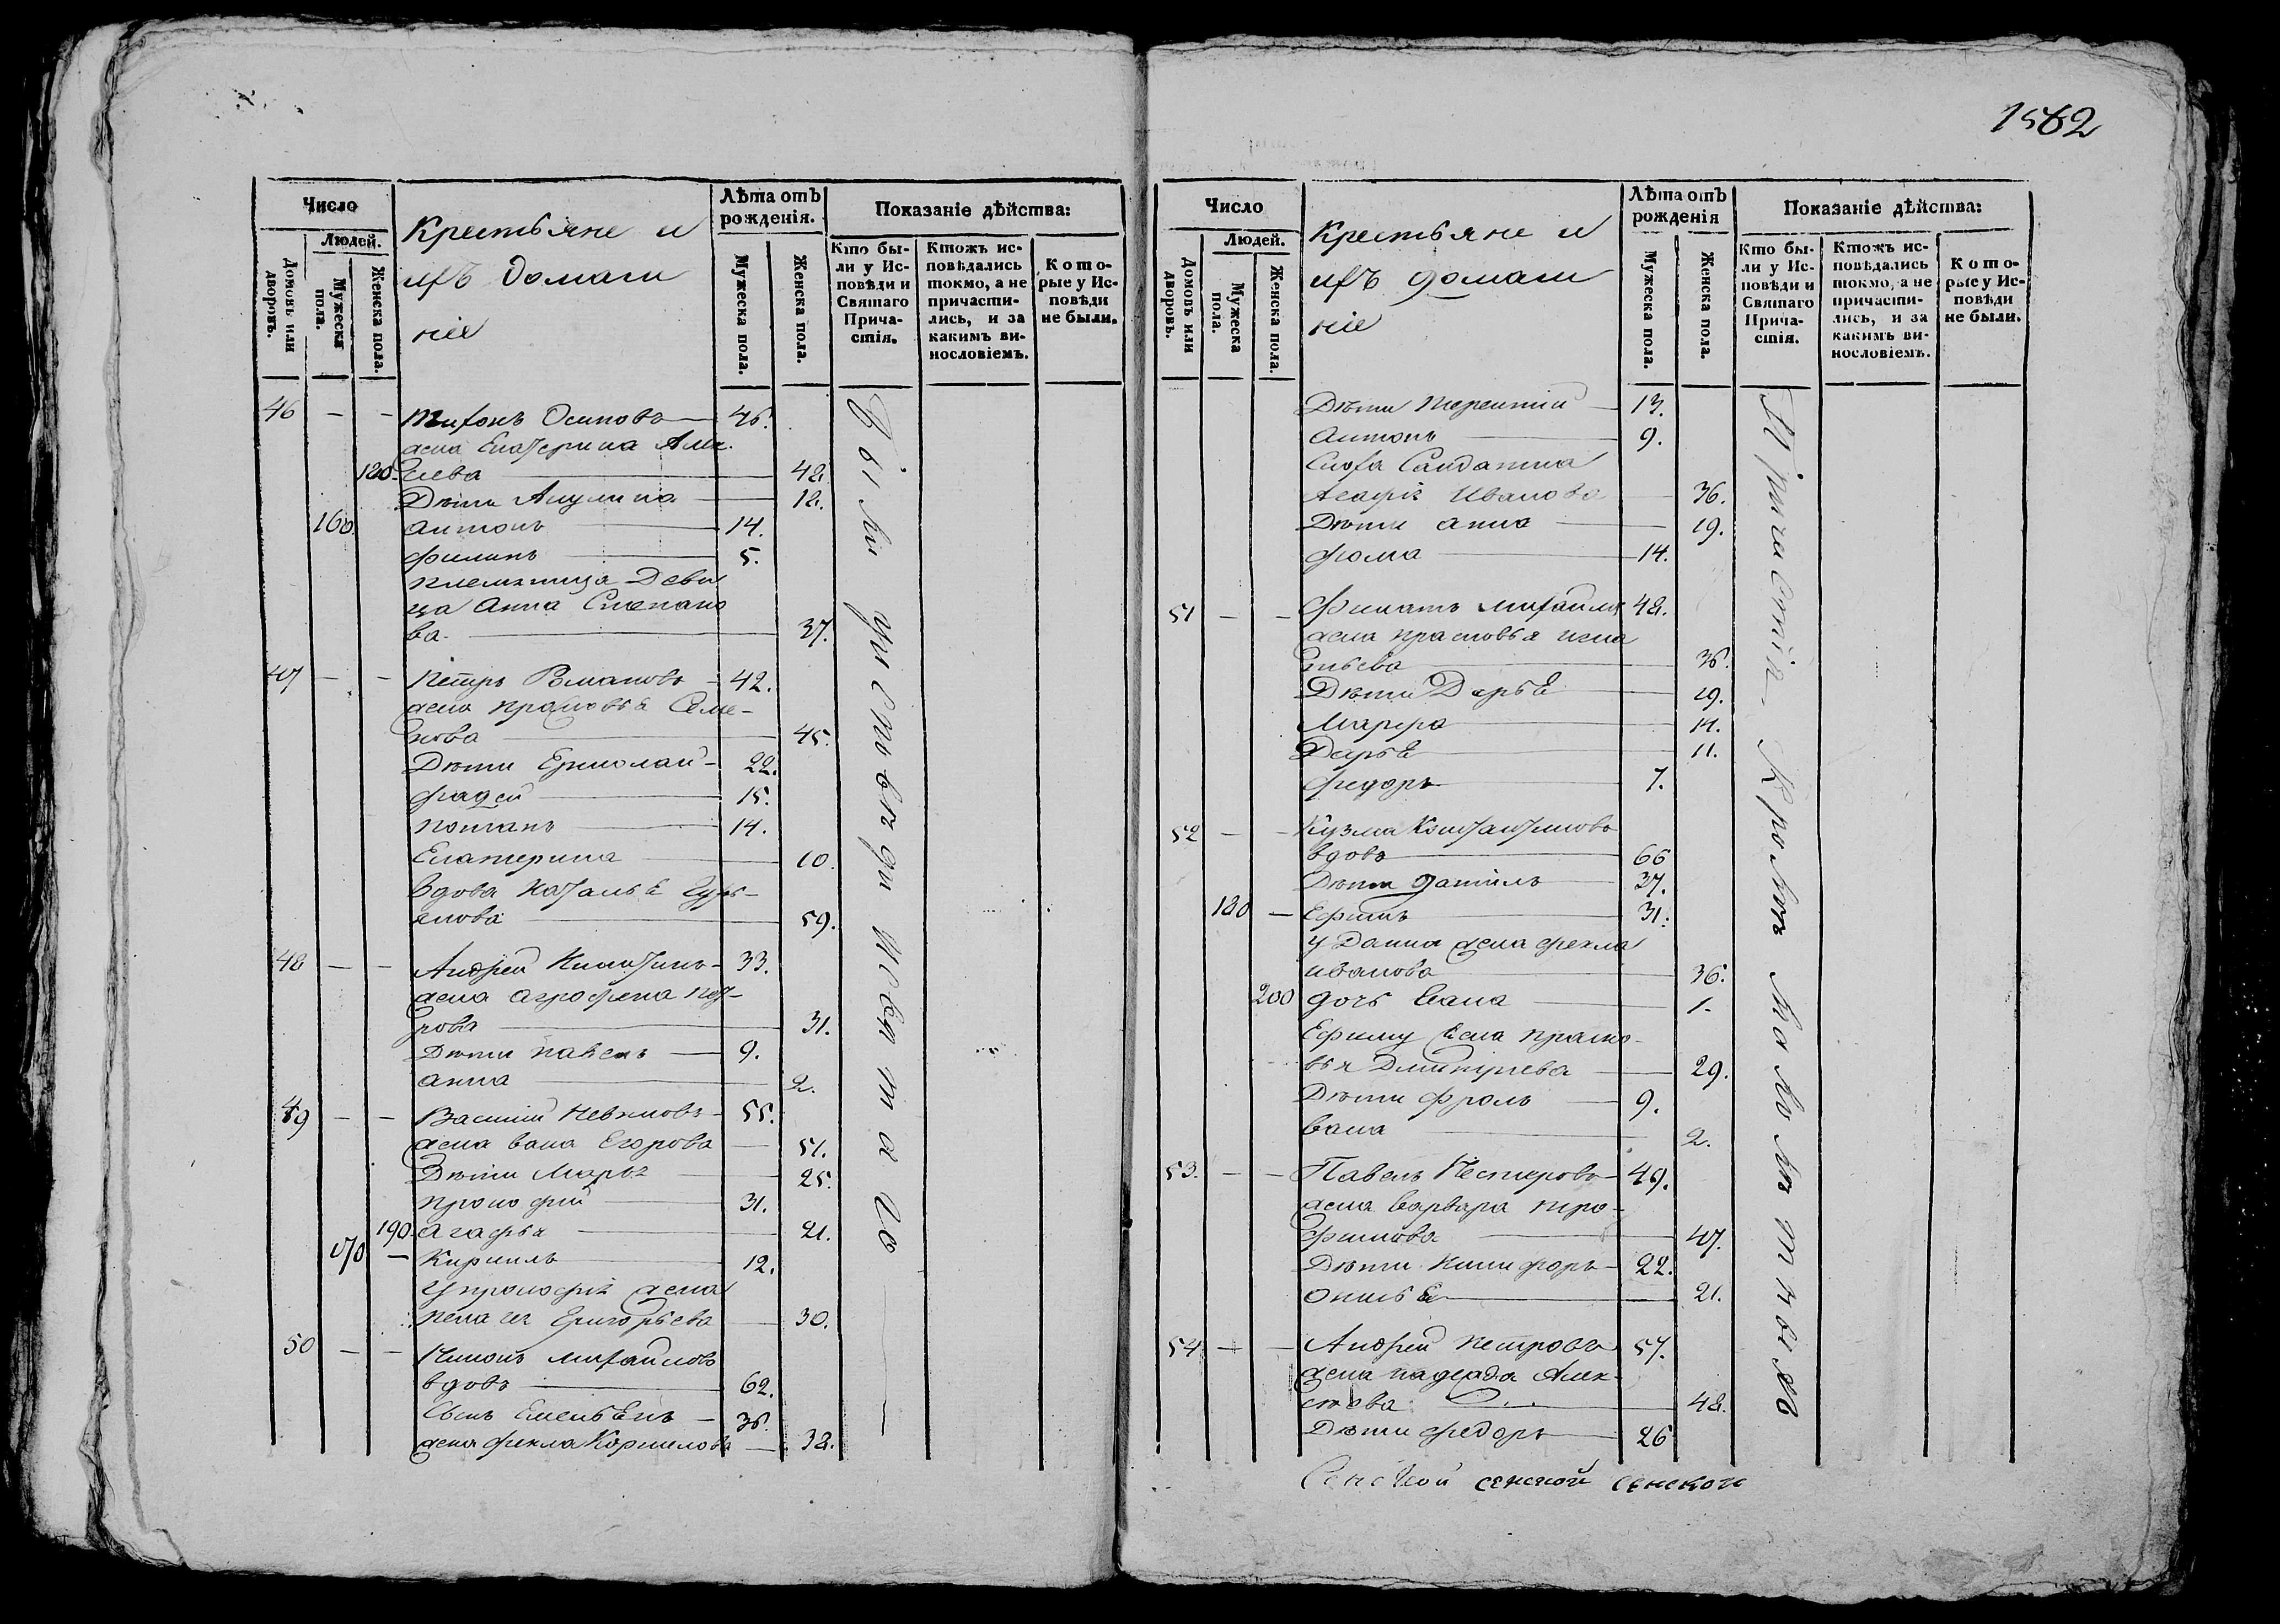 1562
Число
Людей.
Домовъ или дворовъ.
Мужеска пола.
Женска пола.
Крестьяне и
ихъ домаш
ніе
Лѣта отъ рожденія.
Мужеска пола.
Женска пола.
Показаніе дѣйства:
Кто бы-
ли у Ис-
повѣди и
Святаго
Прича-
стія.
Ктожъ ис-
повѣдались
токмо, а не
причасти-
лись, и за
какимъ ви-
нословіемъ.
Кото-
рые у Ис-
повѣди
не были.
46 — — Тихонъ Осиповъ — 46.
жена Екатерина Алек
180. сіева — 42.
Дѣти Акулина — 18.
160. антонъ — 14.
филипъ — 5.
племяница Деви
ца Анна Степано
ва — 37.
47 — — Петръ Романовъ — 42.
жена прасковья Семе-
нова — 45.
Дѣти Ермолай — 22.
фадей — 15.
потапъ — 14.
Екатерина — 10.
вдова Наталья Гурь-
янова — 59.
48 — — Андрей Никитинъ — 33.
жена агрофена пет-
рова — 31.
Дѣти павелъ — 9.
анна — 2.
49 — — Василий — 55.
жена васа Егорова — 51.
Дѣти Марья — 25.
прокофий — 31.
190. агафья — 21.
170 — Кирилъ — 12.
У прокофія жена
пелагея Григорьева — 30.
50 — — михайловъ
вдовъ — 62.
Сынъ Емельянъ — 36.
жена фекла Корнилова — 32.
Были у исповѣди и свята го
Число
Людей.
Домовъ или дворовъ.
Мужеска пола.
Женска пола.
Крестьяне и
ихъ домаш
ніе
Лѣта отъ рожденія
Мужеска пола.
Женска пола.
Показаніе дѣйства:
Кто бы-
ли у Ис-
повѣди и
Святаго
Прича-
стія.
Ктожъ ис-
повѣдались
токмо, а не
причасти-
лись, и за
какимъ ви-
нословіемъ.
Кото-
рые у Ис-
повѣди
не были.
Дѣти терентий — 13.
антонъ — 9.
Сноха Салдатка
Иванова — 36.
Дѣти анна — 19.
фома — 14.
51 — — михайловъ 42.
жена прасковья игна
тьева — 36.
Дѣти Дарья — 19.
Марфа — 14.
Дарья — 11.
федоръ — 7.
52 — — Кузма Констаntиновъ
вдовъ — 66
Дѣти данилъ — 37.
180 — Ефимъ — 31.
у Данила жена фекла
иванова — 36.
200 дочь васа — 1.
Ефиму жена праско-
вья Дмитріева — 29.
Дѣти фролъ — 9.
васа — 2.
53. — — Павелъ Нестеровъ — 49.
жена варвара тро-
фимова — 47.
Дѣти никифоръ — 22.
— 21.
54 — — Андрей петровъ 57.
жена надежда Алек-
сѣева — 48.
Дѣти федоръ — 26
Причастія кромѣ малолѣтныхъ
сенской сенской